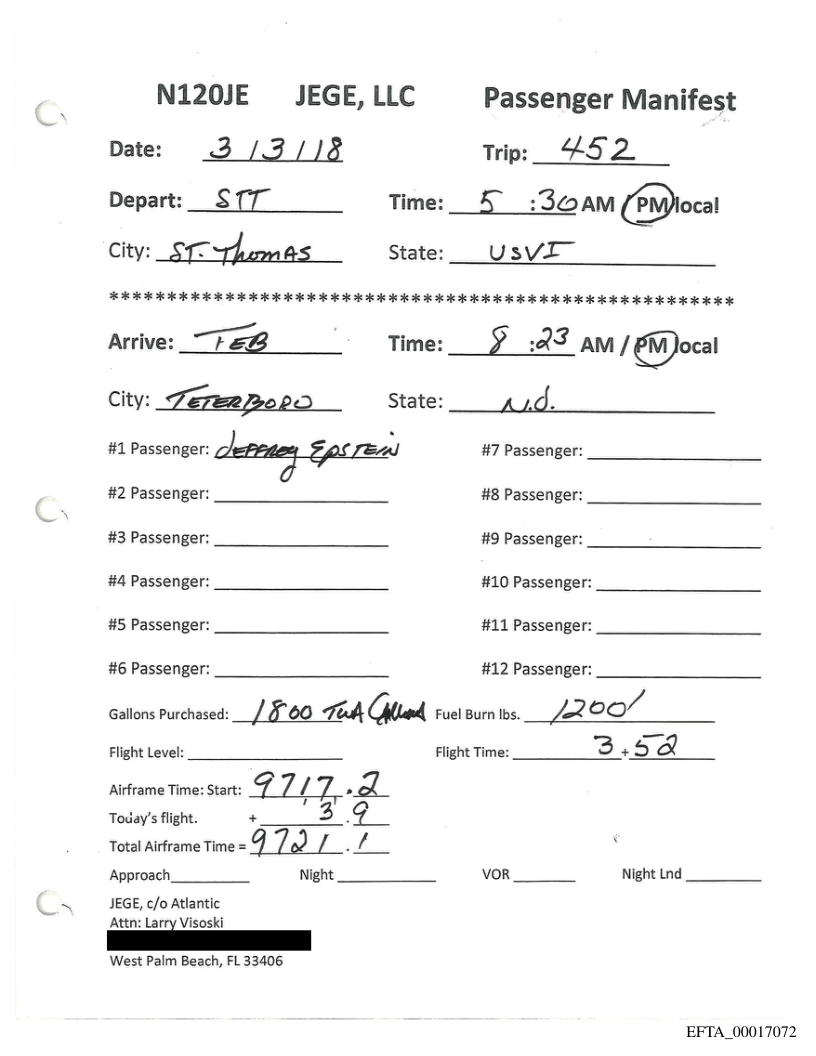 N120JE JEGE, LLC Passenger Manifest
Date: 3 / 3 / 18 Trip: 452
Depart: STT Time: 5 :30 AM / PM local
City: ST. Thomas State: USVI
******************************************************
Arrive: TEB Time: 8 :23 AM / PM local
City: TETERBORO State: N.J.
#1 Passenger: JEFFREY EPSTEIN #7 Passenger:
#2 Passenger: #8 Passenger:
#3 Passenger: #9 Passenger:
#4 Passenger: #10 Passenger:
#5 Passenger: #11 Passenger:
#6 Passenger: #12 Passenger:
Gallons Purchased: 1800 Fuel Burn lbs. 1200
Flight Level: Flight Time: 3 + 52
Airframe Time: Start: 9717.2
Today's flight. + 3.9
Total Airframe Time = 9721.1
Approach Night VOR Night Lnd
JEGE, c/o Atlantic
Attn: Larry Visoski
West Palm Beach, FL 33406
EFTA_00017072